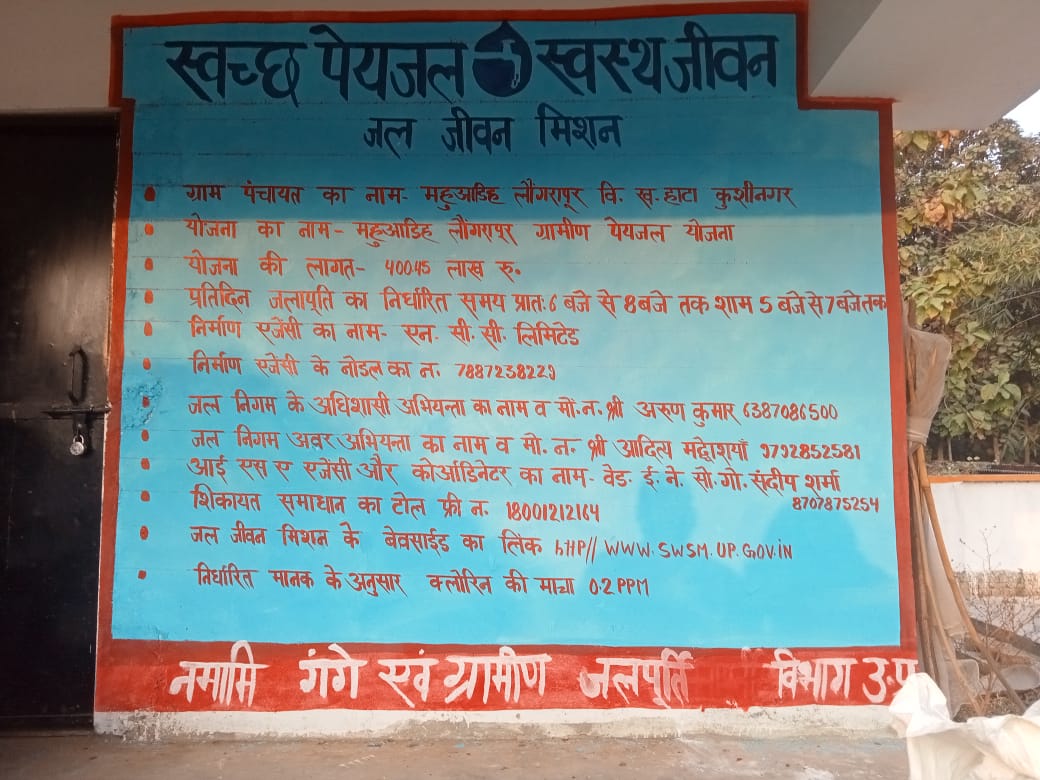 स्वच्छ पेयजल स्वस्थ जीवन
जल जीवन मिशन
ग्राम पंचायत का नाम- महुआडिह लौंगरापूर वि. ख. हाटा कुशीनगर
योजना का नाम- महुआडिह लौंगरापूर ग्रामीण पेयजल योजना
योजना की लागत- 400.45 लाख रु.
प्रतिदिन जलापूति का निर्धारित समय प्रातः 6 बजे से 8 बजे तक शाम 5 बजे से 7 बजे तक
निर्माण एजेंसी का नाम- एन. सी. सी. लिमिटेड
निर्माण एजेंसी के नोडल का न. 7887238229
जल निगम के अधिशासी अभियन्ता का नाम व मो. न. श्री अरुण कुमार 6387086500
जल निगम अवर अभियन्ता का नाम व मो. न. श्री आदित्य 9792852581
आई एस ए एजेंसी और कोआंडिनेटर का नाम- वेड. ई. ने. सो. गो. संदीप शर्मा
8707875254
शिकायत समाधान का टोल फ्री न. 18001212164
जल जीवन मिशन के वेवसाईड का लिंक http// WWW.SWSM.UP.GOV.iN
निर्धारित मानक के अनुसार क्लोरिन की मात्रा 0.2 PPM
नमामि गंगे एवं ग्रामीण जलपूर्ति विभाग उ.प्र